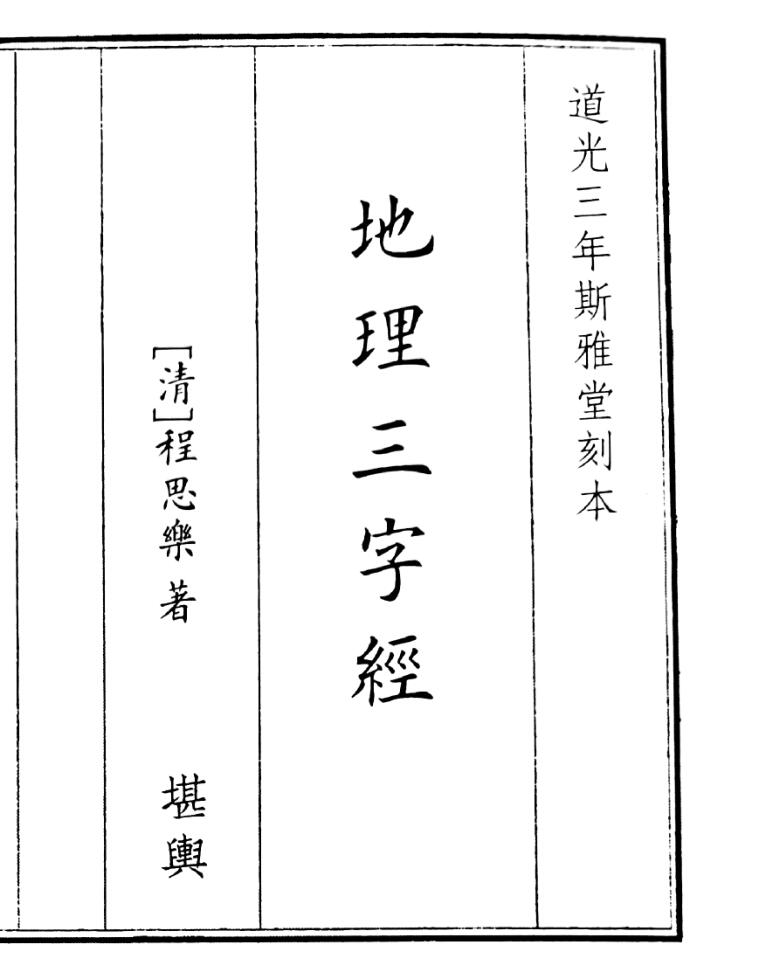 道光三年斯雅堂刻本
地理三字經
[清]程思樂著 堪輿